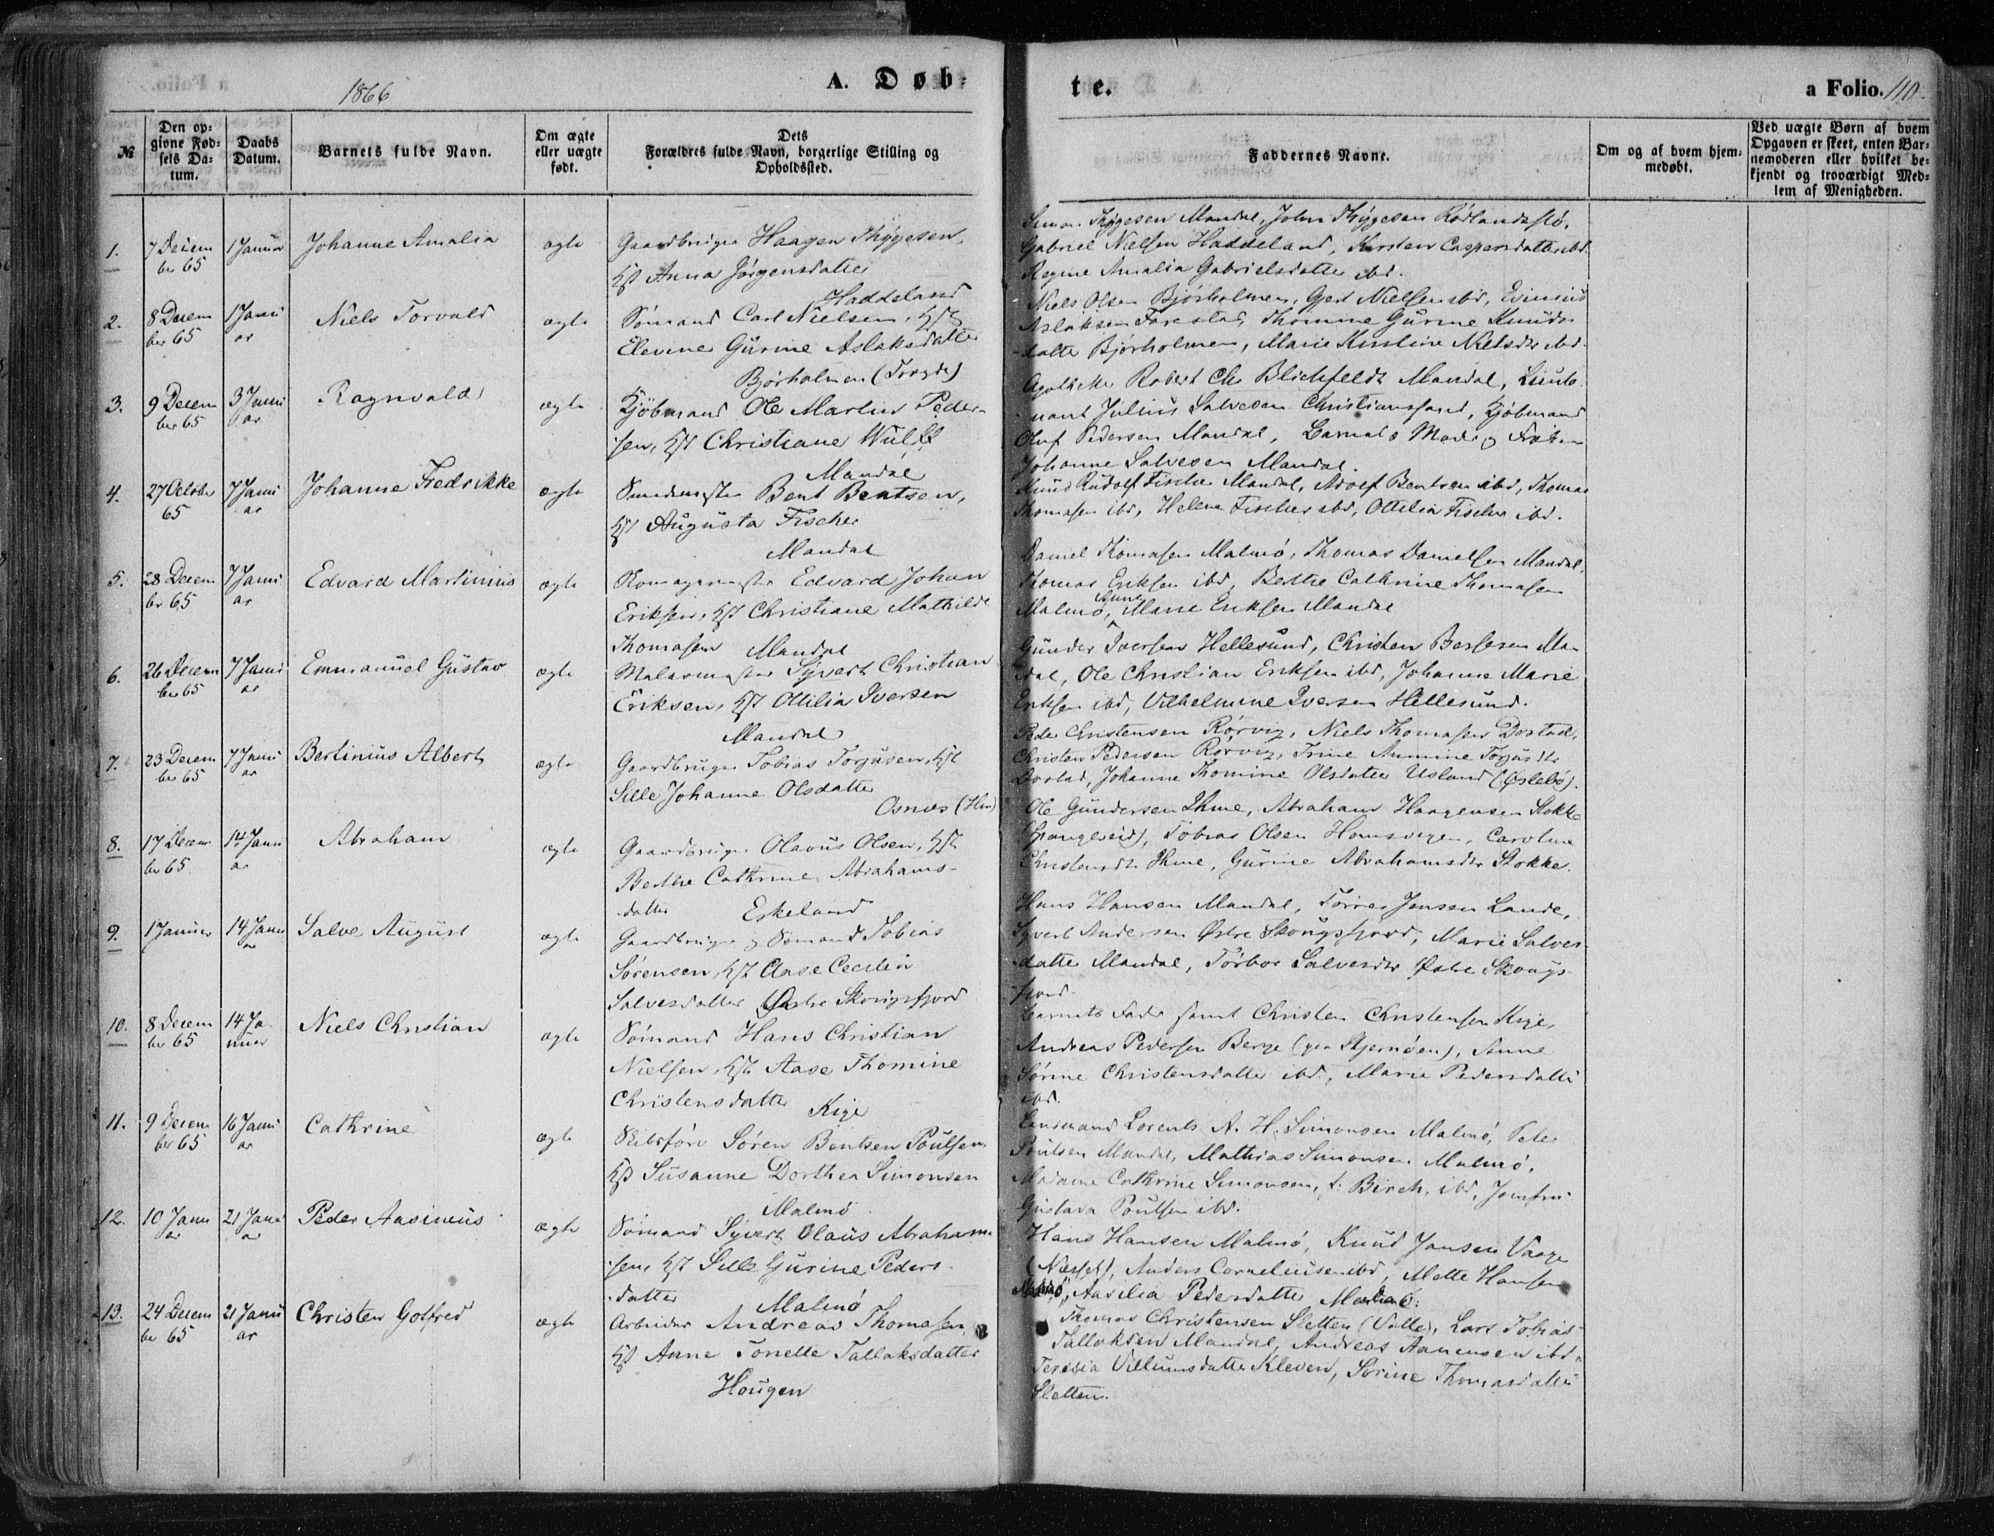 1866
A. Døb-
te.
a Folio. 110.
№
Den opgivne Fødsels Datum.
Daabs Datum.
Barnets fulde Navn.
Om ægte eller uægte født.
Dets Forældres fulde Navn, borgerlige Stilling og Opholdssted.
Faddernes Navne.
Om og af hvem hjemmedøbt.
Ved uægte Børn af hvem Opgaven er skeet, enten Barnemoderen eller hvilket bekjendt og troværdigt Medlem af Menigheden.
1.
7 Decem
ber 65
1 Januar
Johanne Amalia
ægte
Gaardbruger Haagen Thygesen,
Hst Anna Jørgensdatter
Haddeland
Simon Thygesen Mandal, John Thygesen
Gabriel Nielsen Haddeland, Kirsten Caspersdatter ibd.
Regine Amalia Gabrielsdatter ibd.
2.
8 Decem
ber 65
1 Janu
ar
Niels Torvald
ægte
Sømand Carl Nielsen, Hst
Elevine Gurine Aslaksdatter
Bjørholmen (Torgde)
Niels Olsen Bjørholmen, Gert Nielsen ibd,
Aslaksen Forestad, Thomine Gurine Knuds-
datter Bjørholmen, Marie Kirstine Nielsdtr ibd.
3.
9 Decem
ber 65
3 Janu
ar
Ragnvald
ægte
Kjøbmand Ole Martin Peder-
sen, Hst Christiane Wulff
Mandal
Apotheker Robert Chr Blichfeldt Mandal, Lieute-
nant Julius Salvesen Christianssand, Kjøbmand
Oluf Pedersen Mandal, Barnets Moder og Frøken
Johanne Salvesen Mandal.
4.
27 October
65
7 Janu
ar
Johanne Fredrikke
ægte
Smedmester Bent Bentsen,
Hst Augusta Fischer
Mandal
Knud Rudolf Fischer Mandal, Adolf Bentsen ibd, Thomas
Thomasen ibd, Helene Fischer ibd, Ottilia Fischer ibd.
5.
28 Decem
br 65
7 Janu
ar
Edvard Martinius
ægte
Skomagermester Edvard Johan
Eriksen, Hst Christiane Mathilde
Thomasen Mandal
Daniel Thomasen Malmø, Thomas Danielsen Mandal,
Thomas Eriksen ibd, Berthe Cathrine Thomasen
Malmø, Anne Marie Eriksen Mandal
6.
26 Decem
ber 65
7 Janu
ar
Emmanuel Gustav
ægte
Malermester Syvert Christian
Eriksen, Hst Ottilia Iversen
Mandal
Gunder Iversen Hellesund, Christen Berlesen Man-
dal, Ole Christian Eriksen ibd, Johanne Marie
Eriksen ibd, Vilhelmine Iversen Hellesund.
7.
23 Decem
ber 65
7 Janu
ar
Bertinius Albert
ægte
Gaardbruger Tobias Torjusen, Hst
Sille Johanne Olsdatter
Osnes (Hm)
Peder Christensen Rørvig, Niels Thomasen Dorstad,
Christen Pedersen Rørvig, Trine Anmine Torjusdtr
Dorstad, Johanne Thomine Olsdatter Usland (Øslebø).
8.
17 Decem
ber 65
14 Janu
ar
Abraham
ægte
Gaardbruger Olavus Olsen, Hst
Berthe Cathrine Abrahams-
datter Eskeland
Ole Gundersen Ihme, Abraham Haagensen Stokke
(Spangereid), Tobias Olsen Homsvigen, Caroline
Christensdt Ihme, Gurine Abrahamsdtr Stokke.
9.
1 Januar
14 Janu
ar
Salve August
ægte
Gaardbruger og Sømand Tobias
Sørensen, Hst Aase Cecilia
Salvesdatter Østre Skougsfjord
Hans Hansen Mandal, Torres Jensen Lande,
Syvert Andersen Østre Skougsfjord, Marie Salves-
datter Mandal, Torbor Salvesdtr Østre Skougs-
fjord
10.
8 Decem
ber 65
14 Ja-
nuar
Niels Christian
ægte
Sømand Hans Christian
Nielsen, Hst Aase Thomine
Christensdatter Kige
Barnets Fader samt Christen Christensen Kige,
Andreas Pedersen Berge (paa Skjernøen), Anne
Sørine Christensdatter ibd., Marie Pedersdatter
ibd.
11.
9 Decem
ber 65
16 Janu
ar
Cathrine
ægte
Skibsfører Søren Bentsen Poulsen
Hst Susanne Dorthea Simonsen
Malmø
Lensmand Lorents A. H. Simonsen Malmø, Peter
Poulsen Mandal, Mathias Simonsen Malmø,
Madame Cathrine Simonsen, f. Birch, ibd, Jomfru
Gustava Poulsen ibd.
12.
10 Janu
ar
21 Janu
ar
Peder Aasineus
ægte
Sømand Syvert Olaus Abraham-
sen, Hst Sille Gurine Peders-
datter Malmø
Hans Hansen Malmø, Knud Jansen Vaage
(Næsset), Anders Corneliusen ibd, Mette Hansen
Malmø, Aasilia Pedersdatter Malmø.
13.
24 Decem
ber 65
21 Janu
ar
Christen Gotfred
ægte
Arbeider Andreas Thomasen,
Hst Anne Tonette Tallaksdatter
Hougen
Thomas Christensen Sletten (Valle), Lars Tobias
Tallaksen Mandal, Andreas Aanensen ibd.
Teresia Villumsdatter Kleven, Sørine Thomasdatter
Sletten.